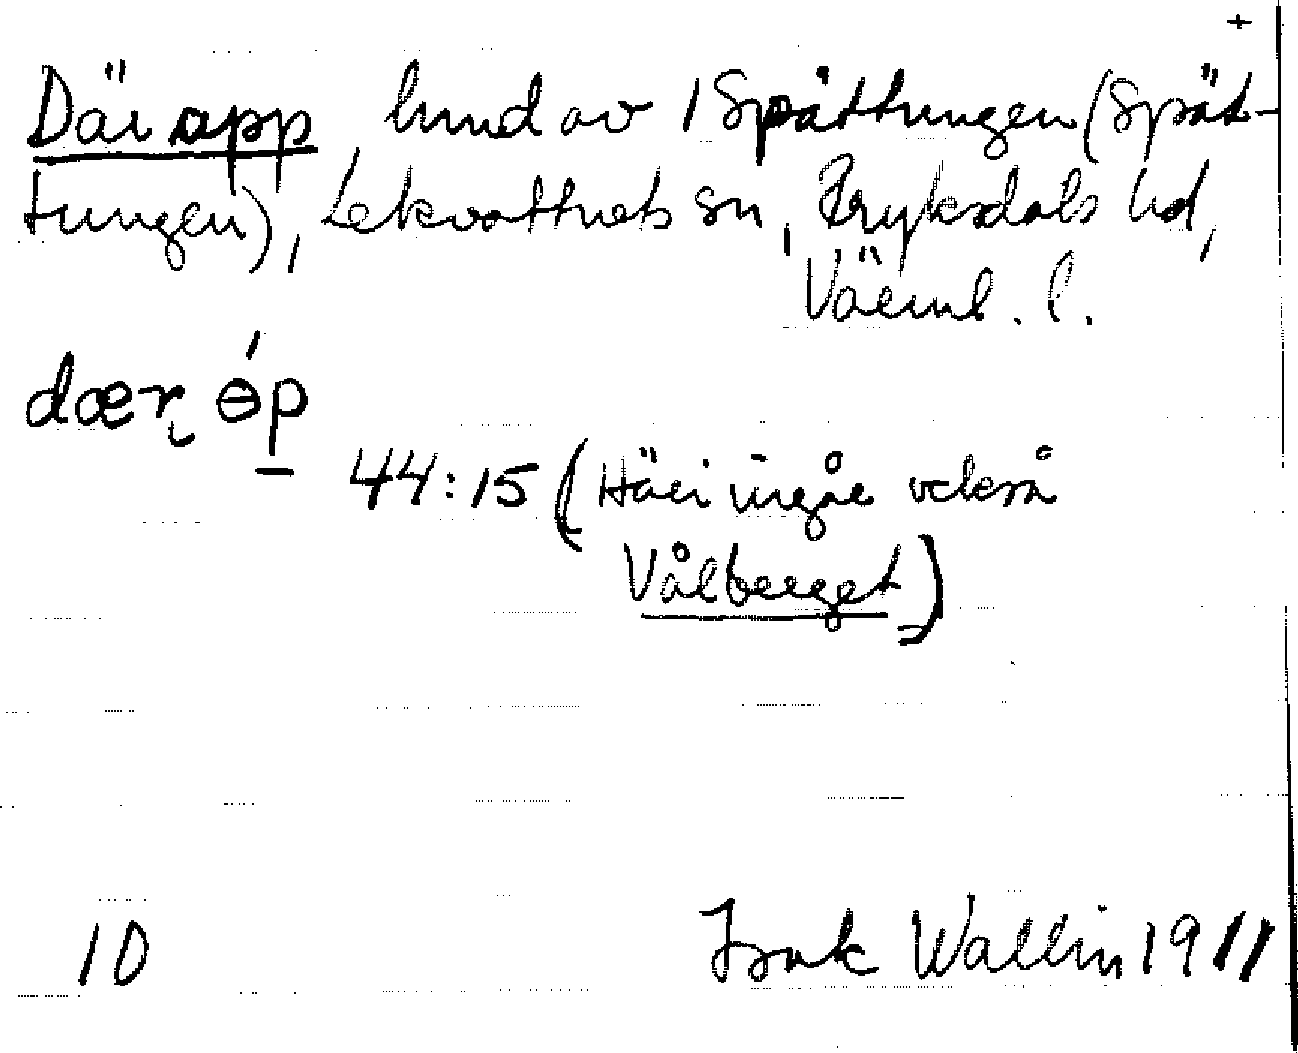 +
Där app, hmd av 1 Spättungen (Spät-
tungen), Lekvattnets sn, Fryksdals hd,
Värml. l.
dær ɵ́p
44:15 (Häri ingår också
Vålberget)
10 Isak Wallin 1911